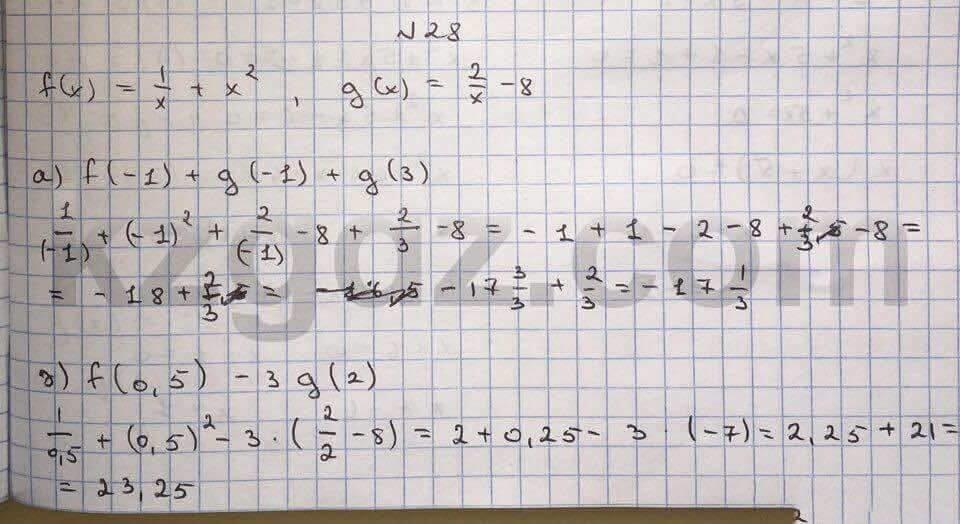 N 28
f(x) = 1/x + x², g(x) = 2/x - 8
a) f(-1) + g(-1) + g(3)
1/(-1) + (-1)² + 2/(-1) - 8 + 2/3 - 8 = - 1 + 1 - 2 - 8 + 2/3 - 8 =
= - 18 + 2/3 = - 17 3/3 + 2/3 = - 17 1/3
f(0,5) - 3 g(2)
1/0,5 + (0,5)² - 3 · (2/2 - 8) = 2 + 0,25 - 3 · (-7) = 2,25 + 21 =
= 23,25
vgdz.com